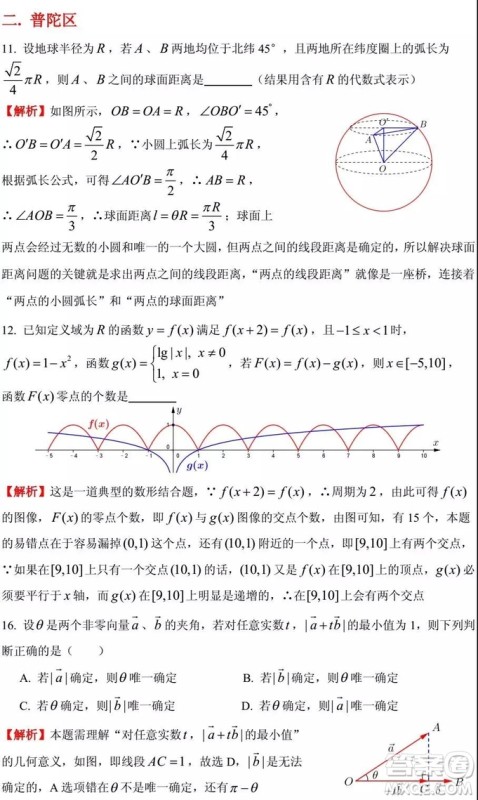 二. 普陀区
11. 设地球半径为 R，若 A、B 两地均位于北纬 45°，且两地所在纬度圈上的弧长为
√2/4 πR，则 A、B 之间的球面距离是______（结果用含有 R 的代数式表示）
【解析】如图所示，OB = OA = R，∠OBO′ = 45°，
∴ O′B = O′A = √2/2 R，∵小圆上弧长为 √2/4 πR，
根据弧长公式，可得∠AO′B = π/2，∴ AB = R，
∴ ∠AOB = π/3，∴球面距离 l = θR = πR/3；球面上
两点会经过无数的小圆和唯一的一个大圆，但两点之间的线段距离是确定的，所以解决球面
距离问题的关键就是求出两点之间的线段距离，“两点的线段距离”就像是一座桥，连接着
“两点的小圆弧长”和“两点的球面距离”
O′
A
B
O
12. 已知定义域为 R 的函数 y = f(x) 满足 f(x+2) = f(x)，且 −1 ≤ x < 1 时，
f(x) = 1 − x²，函数 g(x) = { lg|x|, x ≠ 0
1, x = 0，若 F(x) = f(x) − g(x)，则 x∈[−5,10]，
函数 F(x) 零点的个数是______
y
f(x)
g(x)
x
-5 -4 -3 -2 -1 0 1 2 3 4 5 6 7 8 9 10
【解析】这是一道典型的数形结合题，∵ f(x+2) = f(x)，∴周期为 2，由此可得 f(x)
的图像，F(x) 的零点个数，即 f(x) 与 g(x) 图像的交点个数，由图可知，有 15 个，本题
的易错点在于容易漏掉 (0,1) 这个点，还有 (10,1) 附近的一个点，即 [9,10] 上有两个交点，
∵如果在 [9,10] 上只有一个交点 (10,1) 的话，(10,1) 又是 f(x) 在 [9,10] 上的顶点，g(x) 必
须要平行于 x 轴，而 g(x) 在 [9,10] 上明显是递增的，∴在 [9,10] 上会有两个交点
16. 设 θ 是两个非零向量 a⃗、b⃗ 的夹角，若对任意实数 t，|a⃗ + tb⃗| 的最小值为 1，则下列判
断正确的是（ ）
A. 若|a⃗|确定，则 θ 唯一确定 B. 若|b⃗|确定，则 θ 唯一确定
C. 若 θ 确定，则|b⃗|唯一确定 D. 若 θ 确定，则|a⃗|唯一确定
【解析】本题需理解“对任意实数 t，|a⃗ + tb⃗| 的最小值”
的几何意义，如图，即线段 AC = 1，故选 D，|b⃗| 是无法
确定的，A 选项错在 θ 不是唯一确定，还有 π − θ
A
a⃗
O
θ
B